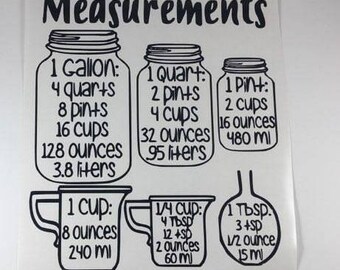 Measurements
1 Gallon:
4 quarts
8 pints
16 cups
128 ounces
3.8 liters
1 Quart:
2 pints
4 cups
32 ounces
.95 liters
1 Pint:
2 cups
16 ounces
480 ml
1 Cup:
8 ounces
240 ml
1/4 Cup:
4 Tbsp
12 tsp
2 ounces
60 ml
1 Tbsp:
3 tsp
1/2 ounce
15 ml